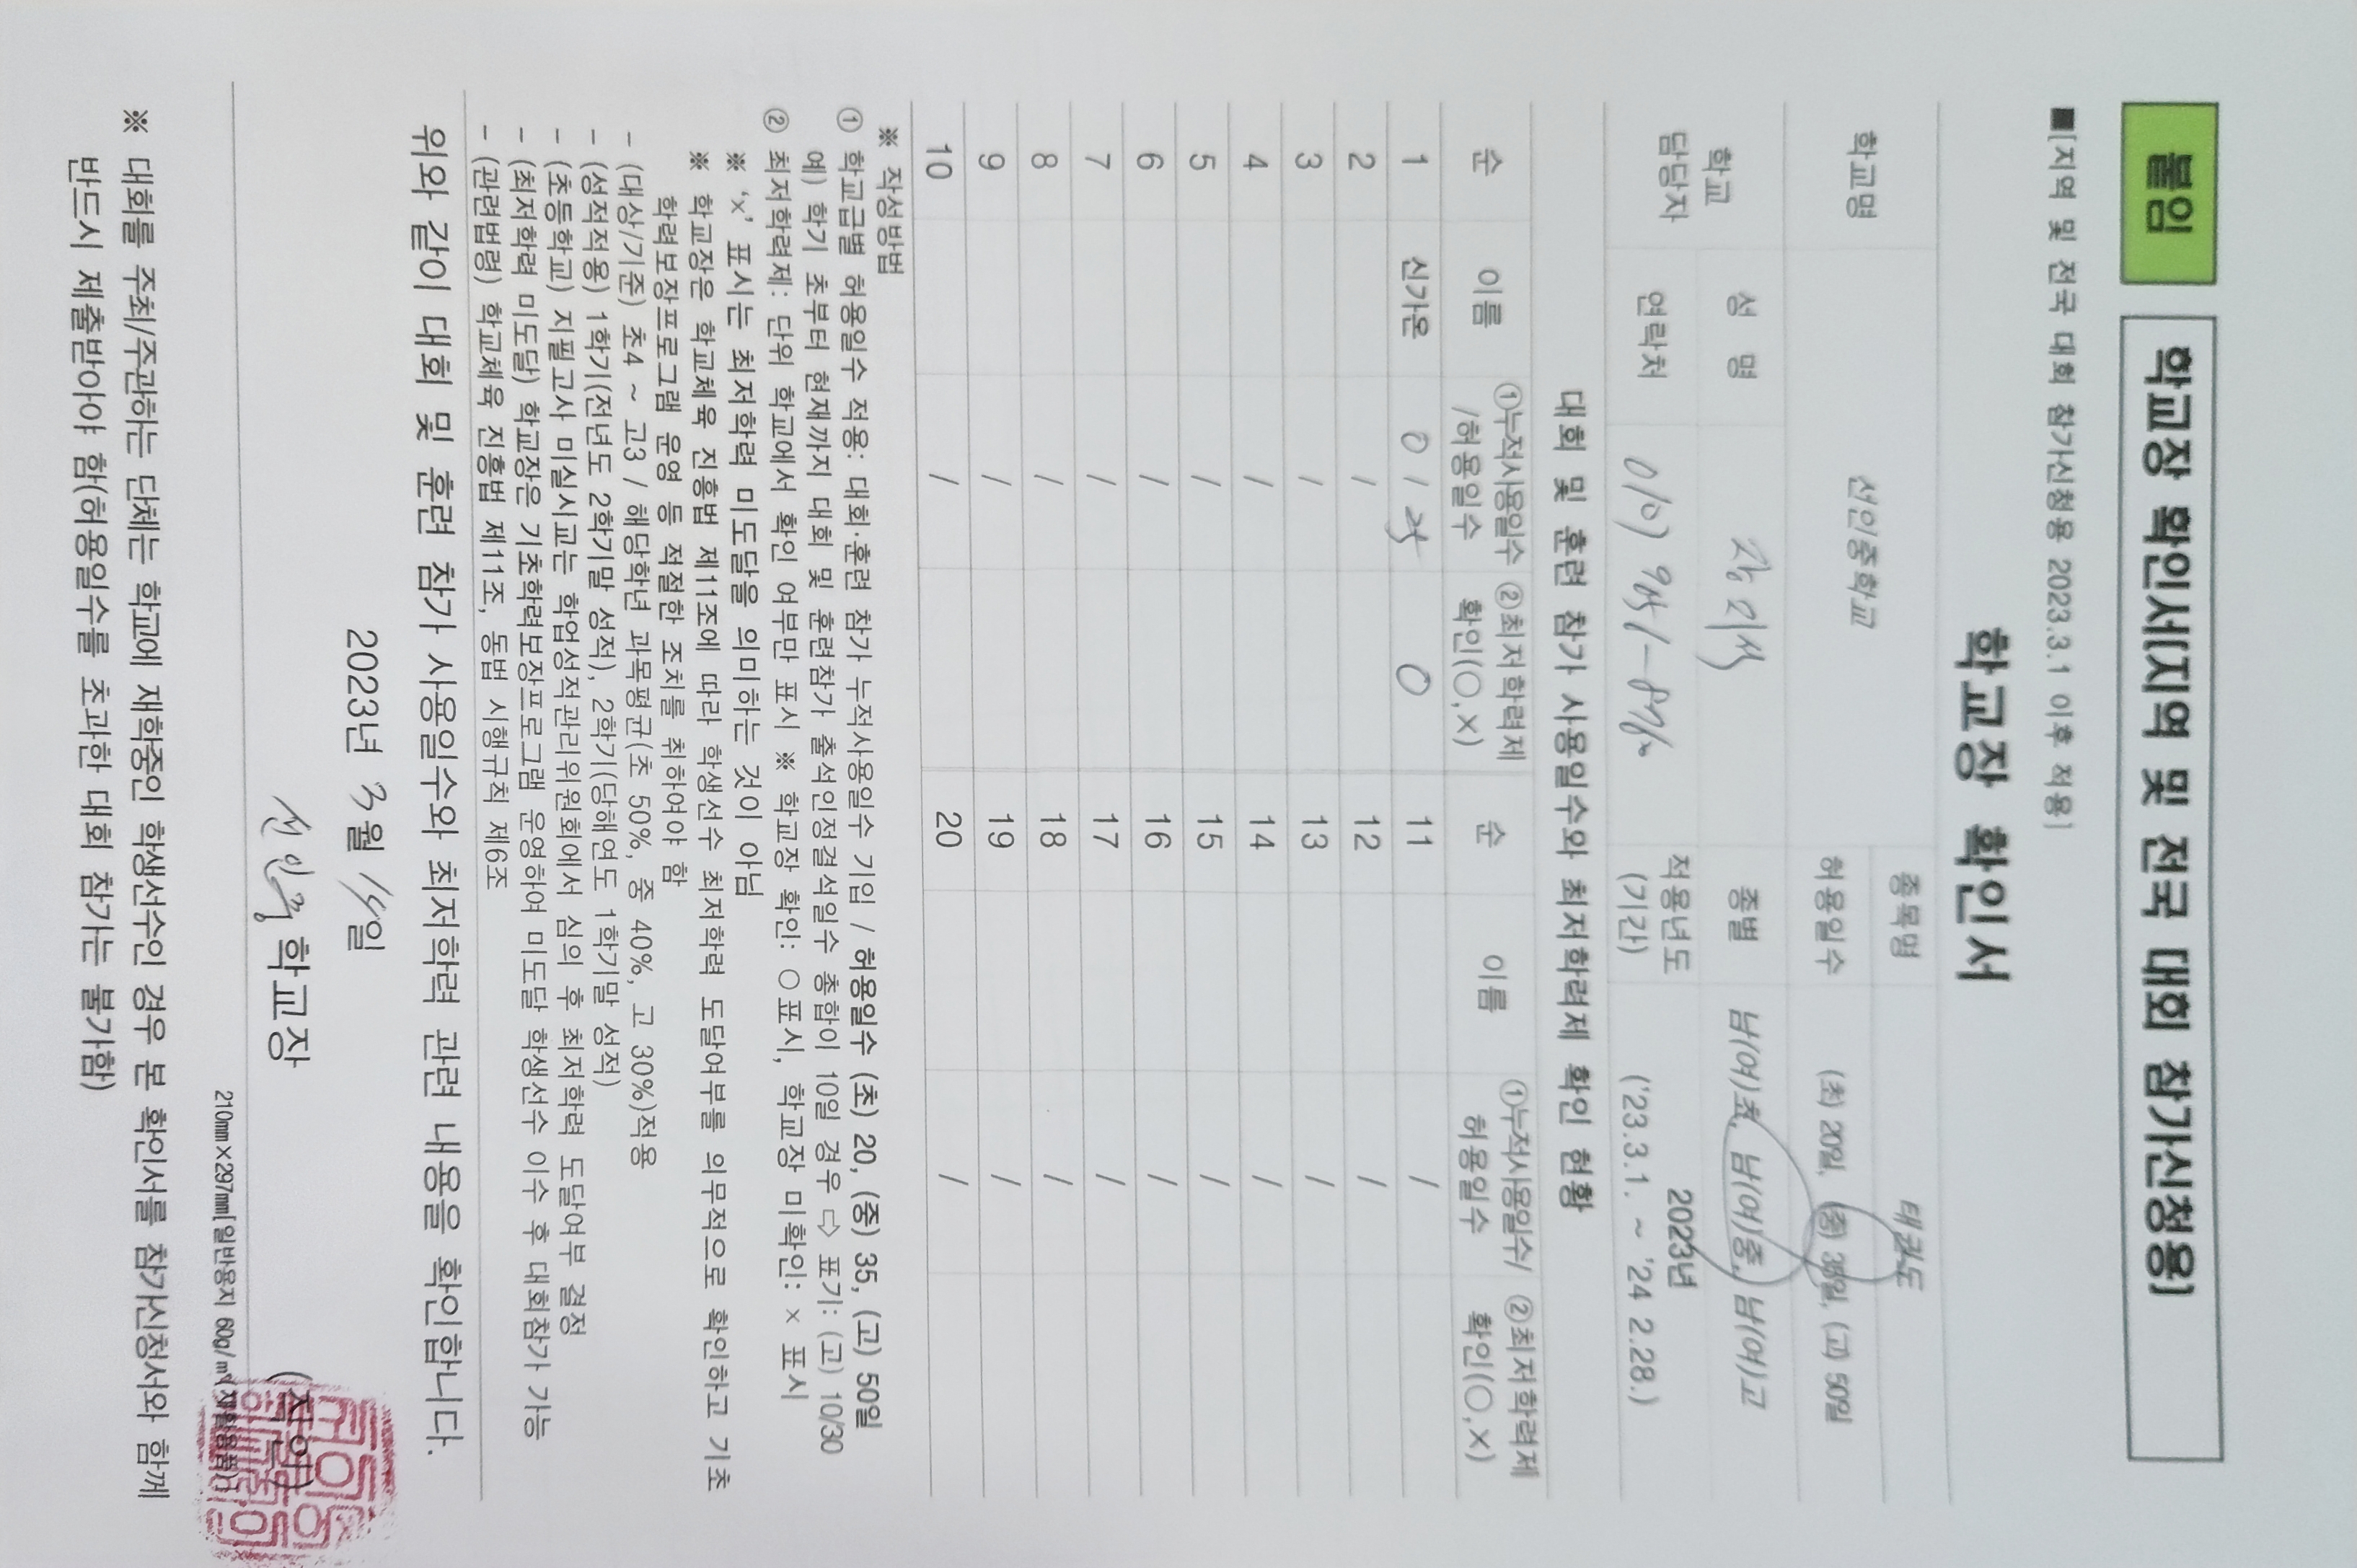 붙임
학교장 확인서[지역 및 전국 대회 참가신청용]
■[지역 및 전국 대회 참가신청용 2023.3.1 이후 적용]
학교장 확인서
학교명 선인중학교 종목명 태권도
허용일수 (초) 20일, (중) 35일, (고) 50일
학교 담당자 성 명 종별 남(여)초, 남(여)중, 남(여)고
연락처 적용년도 (기간) 2023년
('23.3.1. ~ '24 2.28.)
대회 및 훈련 참가 사용일수와 최저학력제 확인 현황
순 이름 ①누적사용일수 /허용일수 ②최저학력제 확인(○,×) 순 이름 ①누적사용일수/ 허용일수 ②최저학력제 확인(○,×)
1 신가온 0 / 35 ○ 11 /
2 / 12 /
3 / 13 /
4 / 14 /
5 / 15 /
6 / 16 /
7 / 17 /
8 / 18 /
9 / 19 /
10 / 20 /
※ 작성방법
① 학교급별 허용일수 적용: 대회·훈련 참가 누적사용일수 기입 / 허용일수 (초) 20, (중) 35, (고) 50일
예) 학기 초부터 현재까지 대회 및 훈련참가 출석인정결석일수 총합이 10일 경우 ⇨ 표기: (고) 10/30
② 최저학력제: 단위 학교에서 확인 여부만 표시 ※ 학교장 확인: ○ 표시, 학교장 미확인: × 표시
※ '×' 표시는 최저학력 미도달을 의미하는 것이 아님
※ 학교장은 학교체육 진흥법 제11조에 따라 학생선수 최저학력 도달여부를 의무적으로 확인하고 기초
학력보장프로그램 운영 등 적절한 조치를 취하여야 함
- (대상/기준) 초4 ~ 고3 / 해당학년 과목평균(초 50%, 중 40%, 고 30%)적용
- (성적적용) 1학기(전년도 2학기말 성적), 2학기(당해연도 1학기말 성적)
- (초등학교) 지필고사 미실시교는 학업성적관리위원회에서 심의 후 최저학력 도달여부 결정
- (최저학력 미도달) 학교장은 기초학력보장프로그램 운영하여 미도달 학생선수 이수 후 대회참가 가능
- (관련법령) 학교체육 진흥법 제11조, 동법 시행규칙 제6조
위와 같이 대회 및 훈련 참가 사용일수와 최저학력 관련 내용을 확인합니다.
2023년 3월 일
선인중 학교장 (직인)
210mm×297mm[일반용지 60g/㎡(재활용품)]
※ 대회를 주최/주관하는 단체는 학교에 재학중인 학생선수인 경우 본 확인서를 참가신청서와 함께
반드시 제출받아야 함(허용일수를 초과한 대회 참가는 불가함)